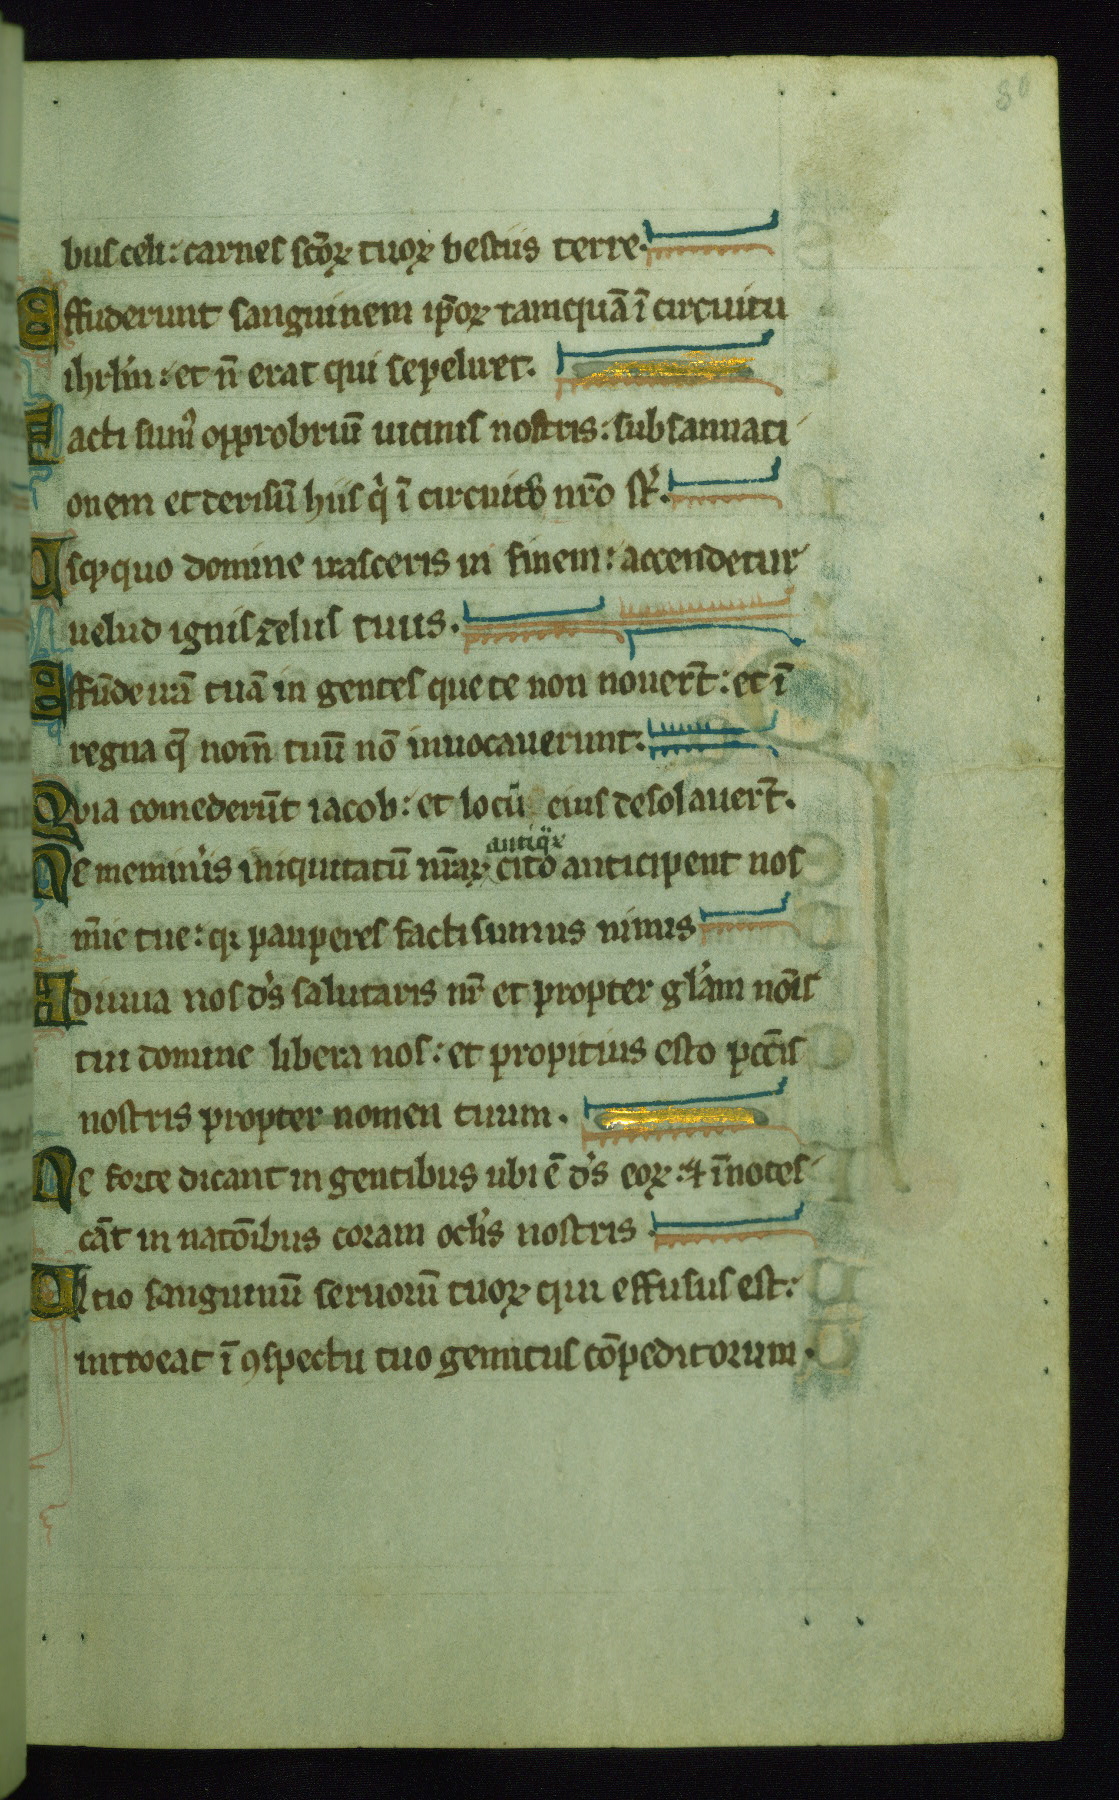 80
bus celi: carnes sc̄oꝝ tuoꝝ bestiis terre.
Effuderunt sanguinem ip̄oꝝ tamquā ī circuitu
ihrl̄m: et n̄ erat qui sepeliret.
Facti sumꝰ opprobriū uicinis nostris: subsannati
onem et derisū hiis q̇ ī circuitu nr̄o st̄.
Usqꝫ quo domine irasceris in finem: accendetur
uelud ignis zelus tuus.
Effūde irā tuā in gentes que te non nouer̄t: et ī
regna q̄ nom̄ tuū nō inuocauerunt.
Quia comeder̄t iacob: et locū eius desolauer̄t.
antiq̈ꝝ
Ne memin̾is iniquitatū nr̄aꝝ cito anticipent nos
m̄ie tue: qꝛ pauperes facti sumus nimis
Adiuua nos d̾s salutaris nr̄ et propter gl̾am nōis
tui domine libera nos: et propitius esto pcc̄is
nostris propter nomen tuum.
Ne forte dicant in gentibus ubi ē d̾s eoꝝ: ⁊ īnotes
cāt in natōibus coram ocl̾is nostris
Ultio sanguinū seruorū tuoꝝ qui effusus est:
introeat ī ꝯspectu tuo gemitus cōpeditorum.